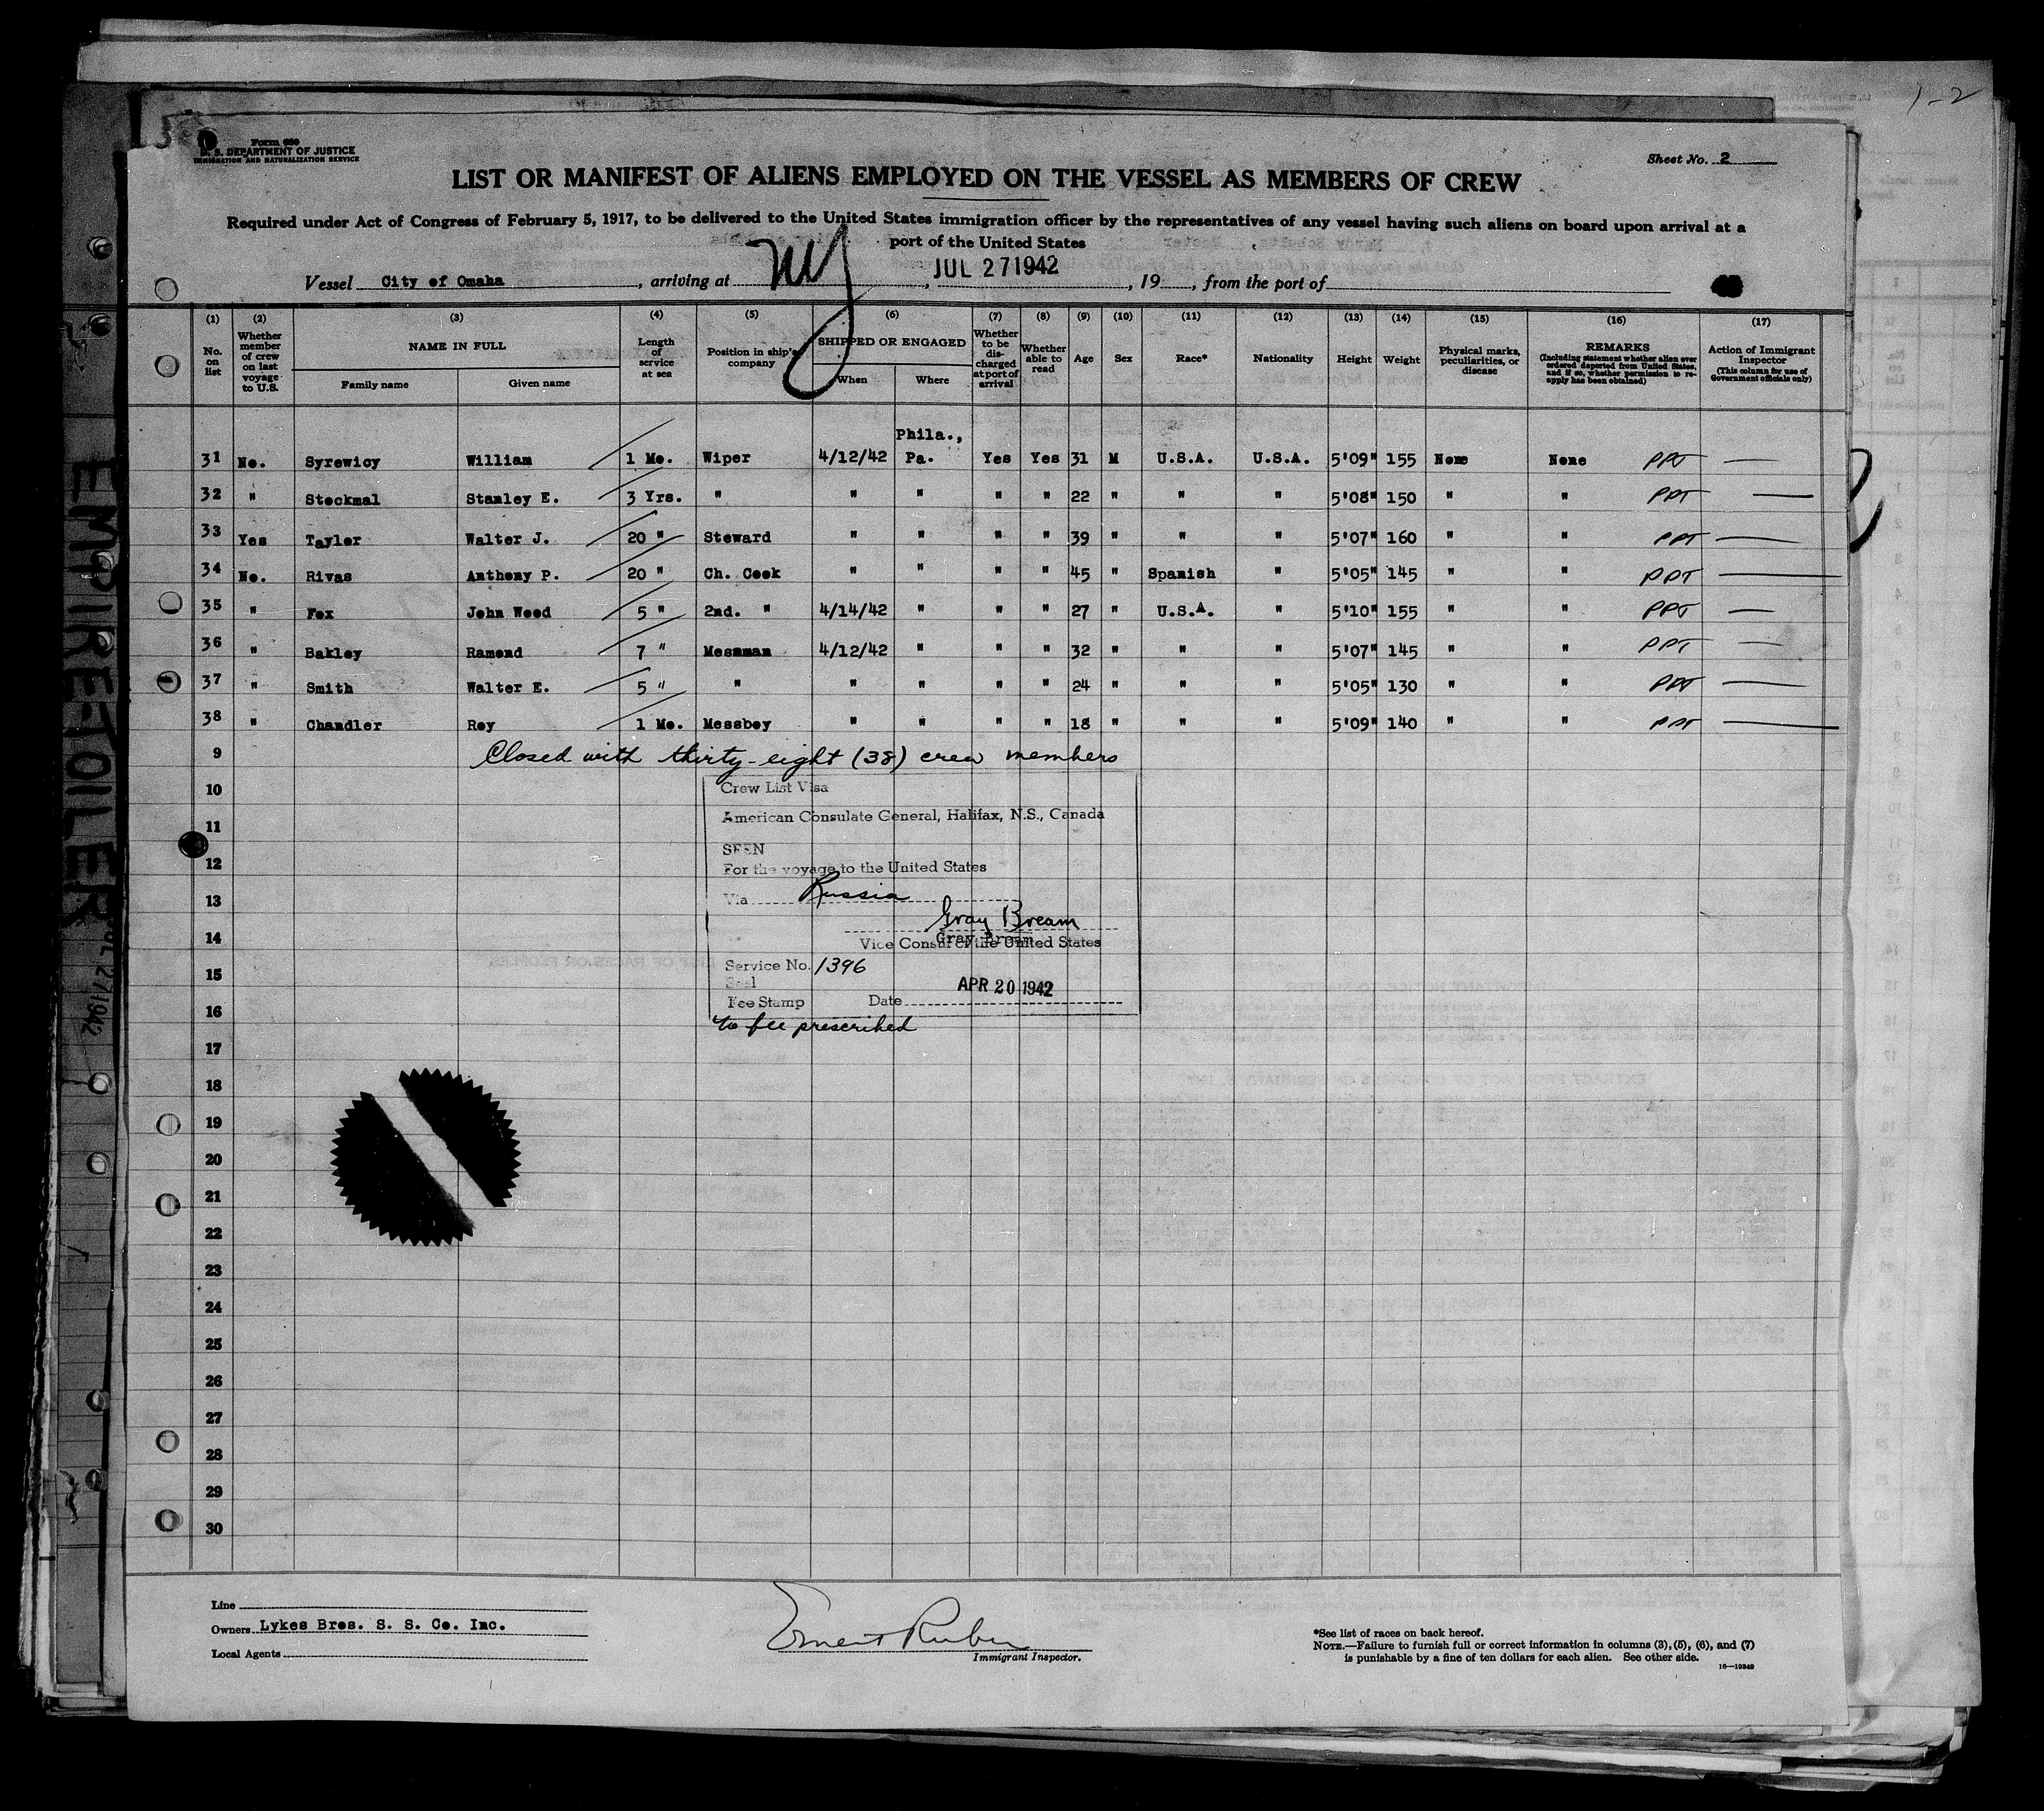 1-2
Form 680
U. S. DEPARTMENT OF JUSTICE
IMMIGRATION AND NATURALIZATION SERVICE
Sheet No. 2
LIST OR MANIFEST OF ALIENS EMPLOYED ON THE VESSEL AS MEMBERS OF CREW
Required under Act of Congress of February 5, 1917, to be delivered to the United States immigration officer by the representatives of any vessel having such aliens on board upon arrival at a
port of the United States
Vessel City of Omaha, arriving at NY, JUL 27 1942, 19 , from the port of
(1) (2) (3) (4) (5) (6) (7) (8) (9) (10) (11) (12) (13) (14) (15) (16) (17)
No. on list
Whether member of crew on last voyage to U.S.
NAME IN FULL
Family name
Given name
Length of service at sea
Position in ship's company
SHIPPED OR ENGAGED
When
Where
Whether to be discharged at port of arrival
Whether able to read
Age
Sex
Race*
Nationality
Height
Weight
Physical marks, peculiarities, or disease
REMARKS
(Including statement whether alien ever ordered deported from United States, and if so, whether permission to reapply has been obtained)
Action of Immigrant Inspector
(This column for use of Government officials only)
Phila.,
31 No. Syrewicy William 1 Mo. Wiper 4/12/42 Pa. Yes Yes 31 M U.S.A. U.S.A. 5'09" 155 None None PPT —
32 " Stockmal Stanley E. 3 Yrs. " " " " " 22 " " " 5'08" 150 " " PPT —
33 Yes Tayler Walter J. 20 " Steward " " " " 39 " " " 5'07" 160 " " PPT —
34 No. Rivas Anthony P. 20 " Ch. Cook " " " " 45 " Spanish " 5'05" 145 " " PPT —
35 " Fox John Wood 5 " 2nd. " 4/14/42 " " " 27 " U.S.A. " 5'10" 155 " " PPT —
36 " Bakley Ramond 7 " Messman 4/12/42 " " " 32 " " " 5'07" 145 " " PPT —
37 " Smith Walter E. 5 " " " " " " 24 " " " 5'05" 130 " " PPT —
38 " Chandler Roy 1 Mo. Messboy " " " " 18 " " " 5'09" 140 " " PPT —
9 Closed with thirty-eight (38) crew members
10 Crew List Visa
American Consulate General, Halifax, N.S., Canada
11
SEEN
12 For the voyage to the United States
13 Via Russia
Gray Bream
Gray Bream
14 Vice Consul of the United States
15 Service No. 1396
Seal
APR 20 1942
Fee Stamp Date
16
No fee prescribed
17
18
19
20
21
22
23
24
25
26
27
28
29
30
Line
Owners Lykes Bros. S. S. Co. Inc.
Local Agents
Ernest Rubin
Immigrant Inspector.
*See list of races on back hereof.
NOTE.—Failure to furnish full or correct information in columns (3), (5), (6), and (7)
is punishable by a fine of ten dollars for each alien. See other side.
16—19349
EMPIRE TOILER
JUL 27 1942